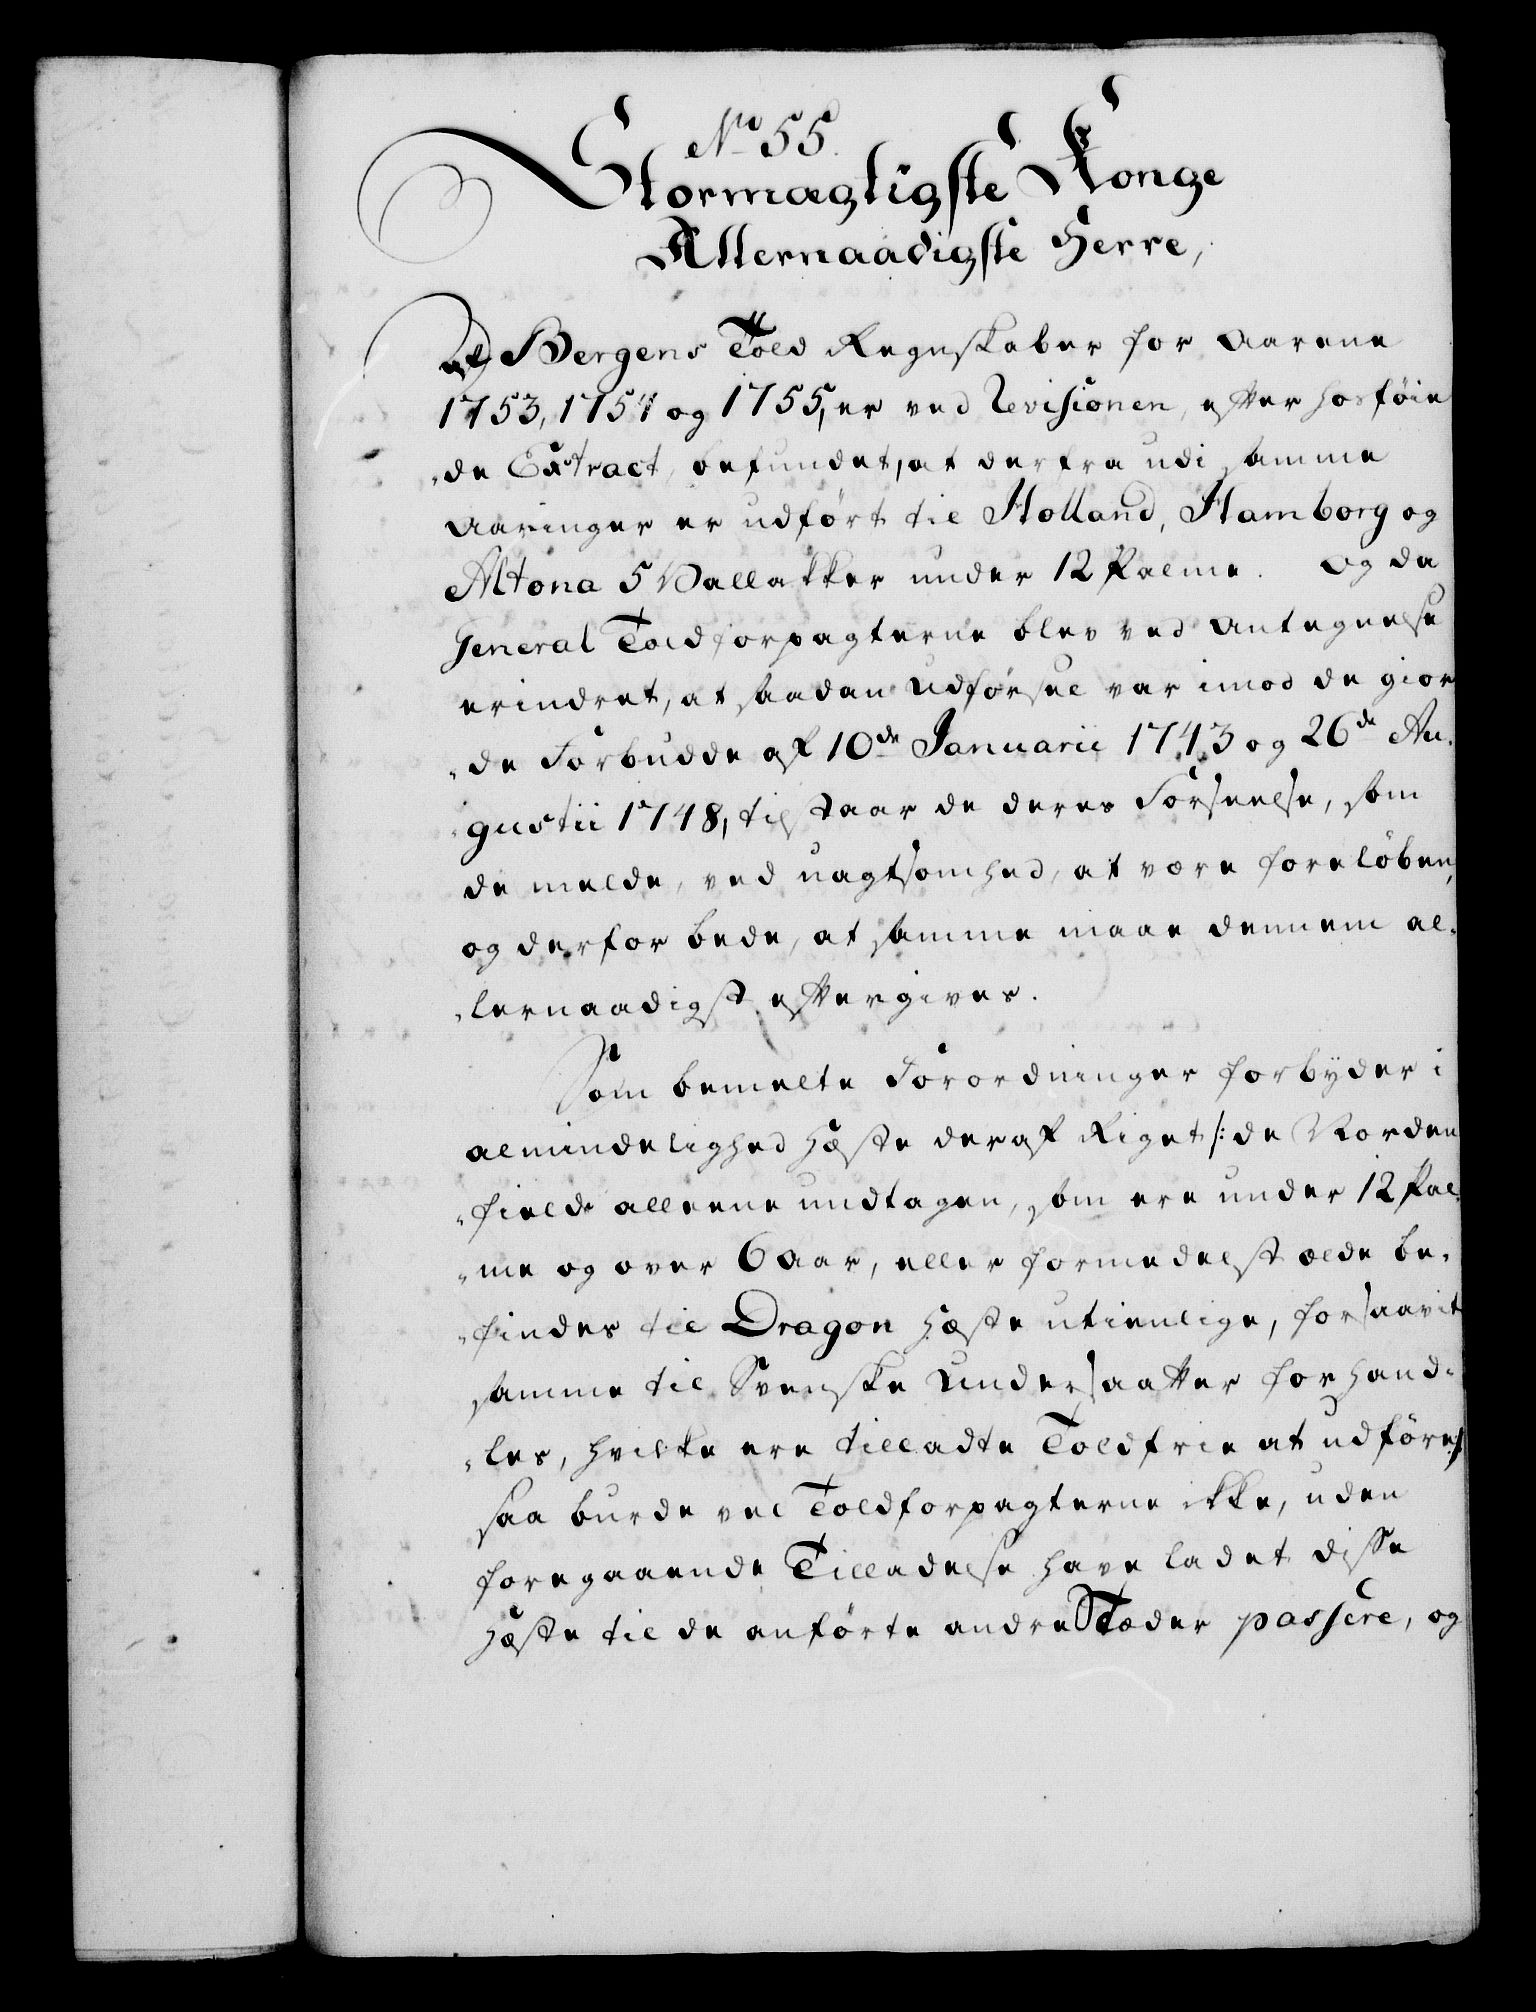 No 55.
Stormægtigste Konge
Allernaadigste Herre,
Af Bergens Told Regnskaber for Aarene
1753, 1754 og 1755, er ved Revisionen, efter hosføie
„de Extract, befundet, at derfra udi samme
Aaringer er udført til Holland, Hamborg og
Altona 5 Vallakker under 12 Palme. Og da
General Toldforpagterne blev ved Antegnelse
erindret, at saadan Udførsel var imod de gior
„de Forbudde af 10de Januarii 1743 og 26de Au„
„gustii 1748, tilstaar de deres Forseelse, som
de melde, ved uagtsomhed, at være foreløben,
og derfor bede, at samme maae dennem al„
„lernaadigst eftergives.
Som bemelte Forordninger forbyder i
almindelighed Hæste der af Riget /: de Norden
„fields alleene undtagen, som ere under 12 Pal„
„me og over 6 Aar, eller formedelst ælde be„
„findes til Dragon Hæste utienlige, forsaavit
samme til Svenske Undersaatter forhand„
„les, hvilke ere tilladte Toldfrie at udføres :/
saa burde vel Toldforpagterne ikke, uden
foregaaende Tilladelse have ladet disse
Hæste til de anførte andre Stæder passere, og